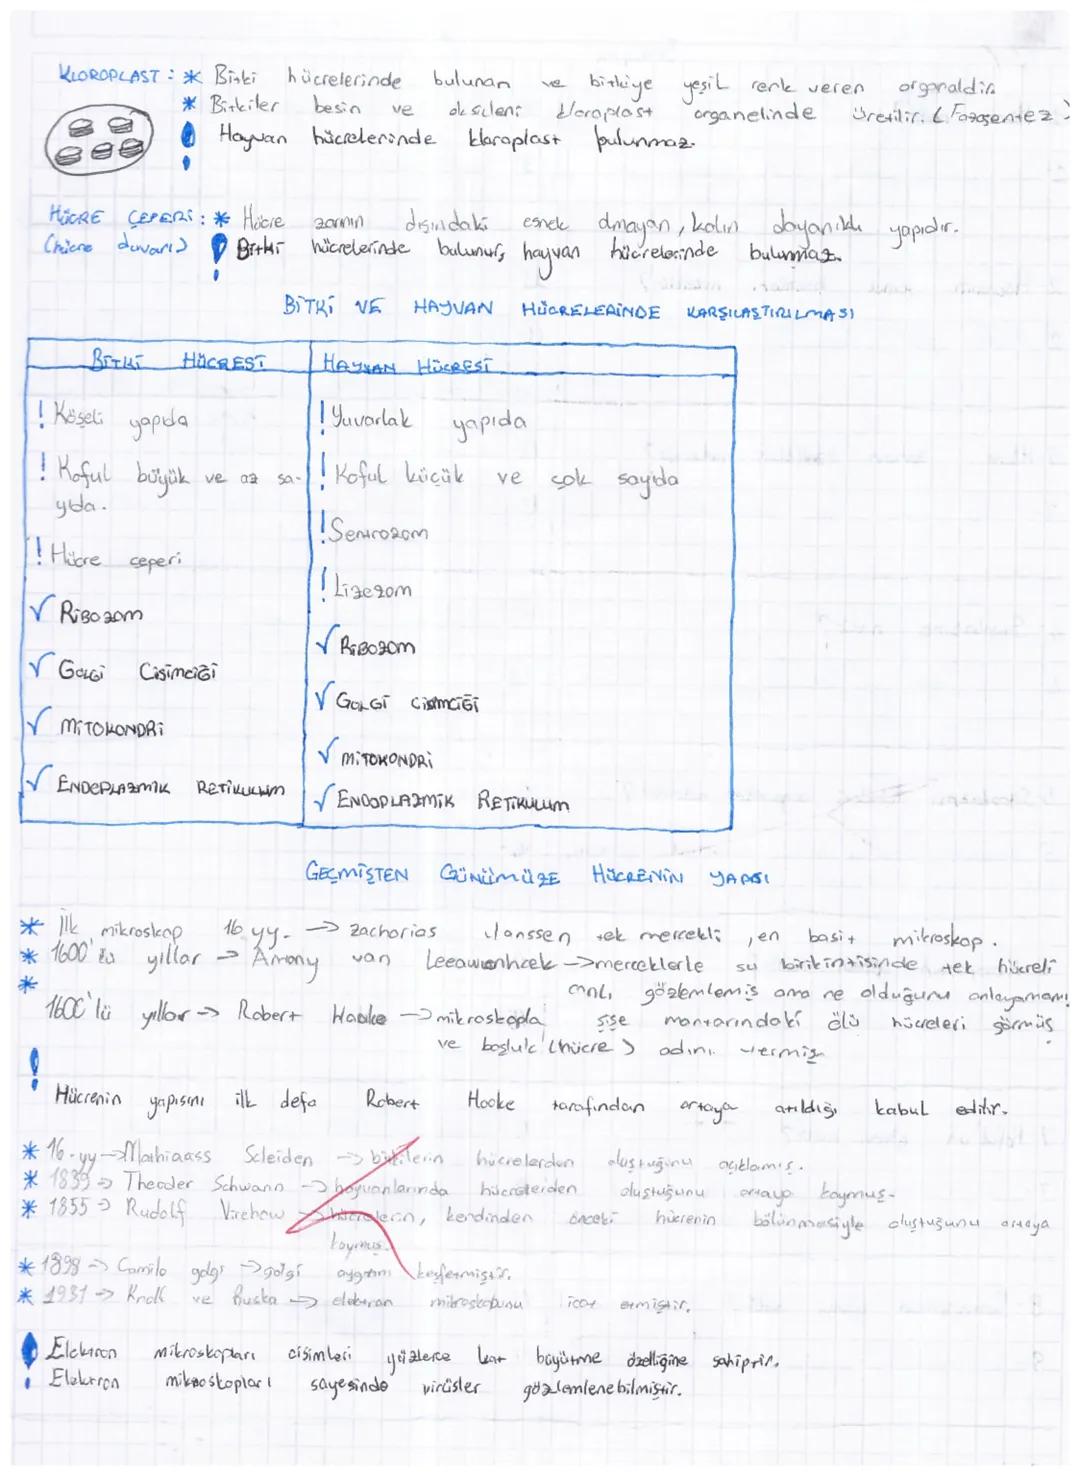 KLOROPLAST : * Bitki hücrelerinde bulunan ve bitkiye yeşil renk veren organaldir.
* Bitkiler besin ve oksijeni kloroplast organelinde üretilir. (Fotosentez)
! Hayvan hücrelerinde kloroplast bulunmaz.
HÜCRE ÇEPERİ : * Hücre zarının dışındaki esnek olmayan, kalın dayanıklı yapıdır.
(hücre duvarı) ! Bitki hücrelerinde bulunur, hayvan hücrelerinde bulunmaz.
BİTKİ VE HAYVAN HÜCRELERİNDE KARŞILAŞTIRILMASI
BİTKİ HÜCRESİ
! Köşeli yapıda
! Koful büyük ve az sa-
yıda.
! Hücre çeperi
√ RİBOZOM
√ GOLGİ CİSİMCİĞİ
√ MİTOKONDRİ
√ ENDEPLAZMİK RETİKULUM
HAYVAN HÜCRESİ
! Yuvarlak yapıda
! Koful küçük ve çok sayıda
! Sentrozom
! Lizezom
√ RİBOZOM
√ GOLGİ CİSİMCİĞİ
√ MİTOKONDRİ
√ ENDOPLAZMİK RETİKULUM
GEÇMİŞTEN GÜNÜMÜZE HÜCRENİN YAPISI
* İlk mikroskop 16 yy. → zacharias Janssen tek mercekli, en basit mikroskop.
* 1600'lü yıllar → Antony van Leeawenhoek → merceklerle su birikintisinde tek hücreli
* canlı gözlemlemiş ama ne olduğunu anlayamamış
1600'lü yıllar → Robert Hooke → mikroskopla şişe mantarındaki ölü hücreleri görmüş
ve boşluk (hücre) adını vermiş
! Hücrenin yapısını ilk defa Robert Hooke tarafından ortaya atıldığı kabul edilir.
* 16.yy → Mathiaass Scleiden → bitkilerin hücrelerden oluştuğunu açıklamış.
* 1839 → Theoder Schwann → hayvanlarında hücrelerden oluştuğunu ortaya koymuş.
* 1855 → Rudolf Virchow → hücrelerin, kendinden önceki hücrenin bölünmesiyle oluştuğunu ortaya
koymuş.
* 1898 → Camilo golgi → golgi aygıtını keşfetmiştir.
* 1931 → Knoll ve Ruska → elektron mikroskobunu icat etmiştir.
! Elektron mikroskopları cisimleri yüzlerce kat büyütme özelliğine sahiptir.
! Elektron mikroskopları sayesinde virüsler gözlemlenebilmiştir.